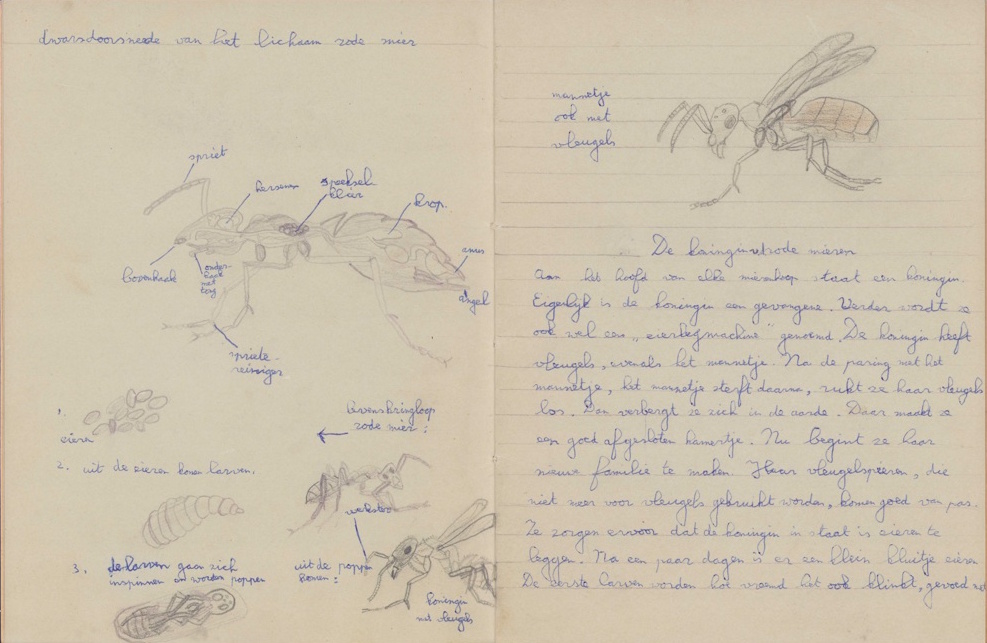 dwarsdoorsnede van het lichaam rode mier
spriet
hersenen
speeksel-
klier
krop.
anus
angel
bovenkaak
onder-
kaak
met
tong
spriete-
reiniger
1.
eieren
2. uit de eieren komen larven.
3. de larven gaan zich
inspinnen en worden poppen
levenskringloop
rode mier:
werkster
uit de poppen
komen:
koningin
met vleugels
mannetje
ook met
vleugels
De koningin rode mieren
Aan het hoofd van elke mierenhoop staat een koningin.
Eigenlijk is de koningin een gevangene. Verder wordt ze
ook wel een „eierlegmachine" genoemd. De koningin heeft
vleugels, evenals het mannetje. Na de paring met het
mannetje, het mannetje sterft daarna, rukt ze haar vleugels
los. Dan verbergt ze zich in de aarde. Daar maakt ze
een goed afgesloten kamertje. Nu begint ze haar
nieuwe familie te maken. Haar vleugelspieren, die
niet meer voor vleugels gebruikt worden, komen goed van pas.
Ze zorgen ervoor dat de koningin in staat is eieren te
leggen. Na een paar dagen is er een klein kluitje eieren
De eerste larven worden hoe vreemd het ook klinkt, gevoed